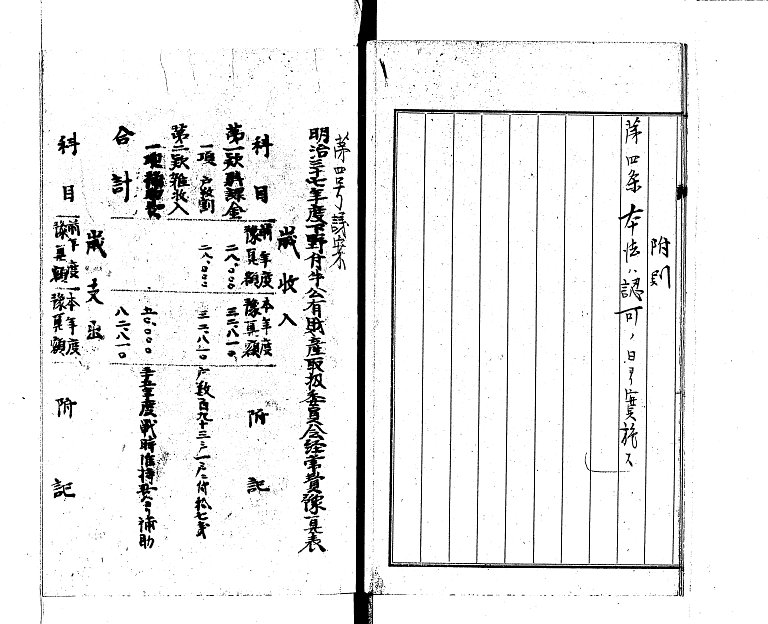 附則
第四条 本法ハ認可ノ日ヨリ實施ス
第四号議案
明治三十七年度下野村牛公有財産取扱委員会経常費豫算表
歳収入
科目
前年度豫算額
本年度豫算額
附記
第一款 賦課金
二八.〇〇〇
三二.八一〇
一項 戸数割
二八.〇〇〇
三二.八一〇
戸数百九十三戸一戸ニ付拾七銭
第二款 雑収入
一項
五〇.〇〇〇
三十五年度戦時維持費ヨリ補助
合計
八二.八一〇
歳支出
科目
前年度豫算額
本年度豫算額
附記